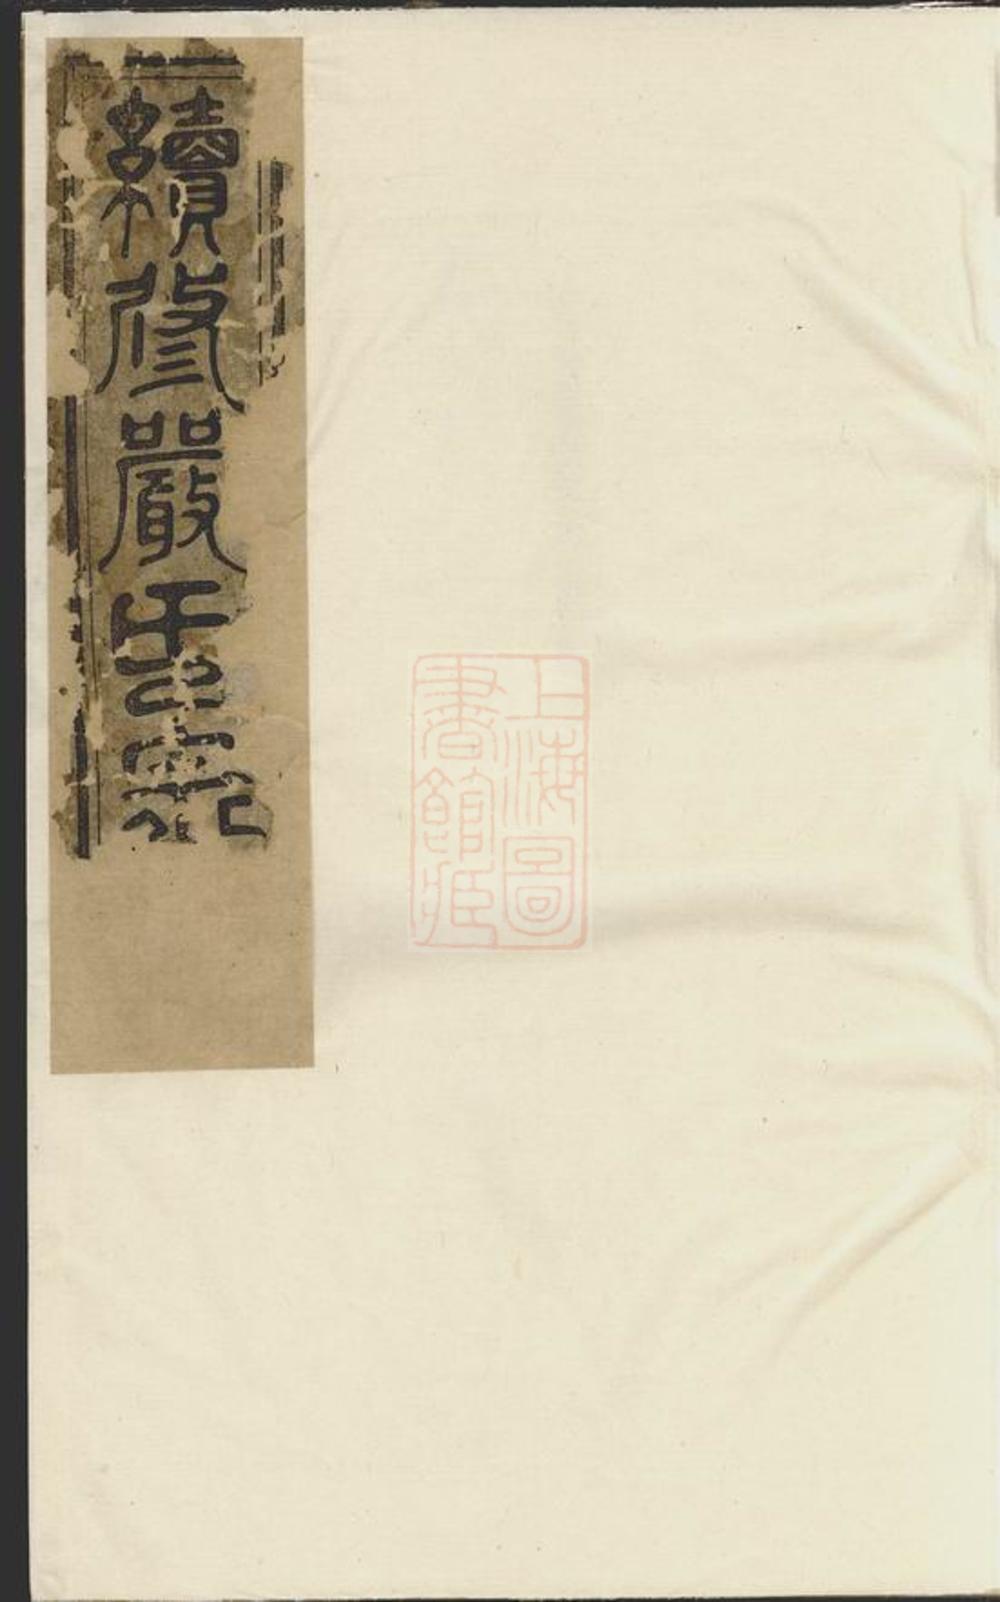 續修嚴氏宗
上海圖
書館藏